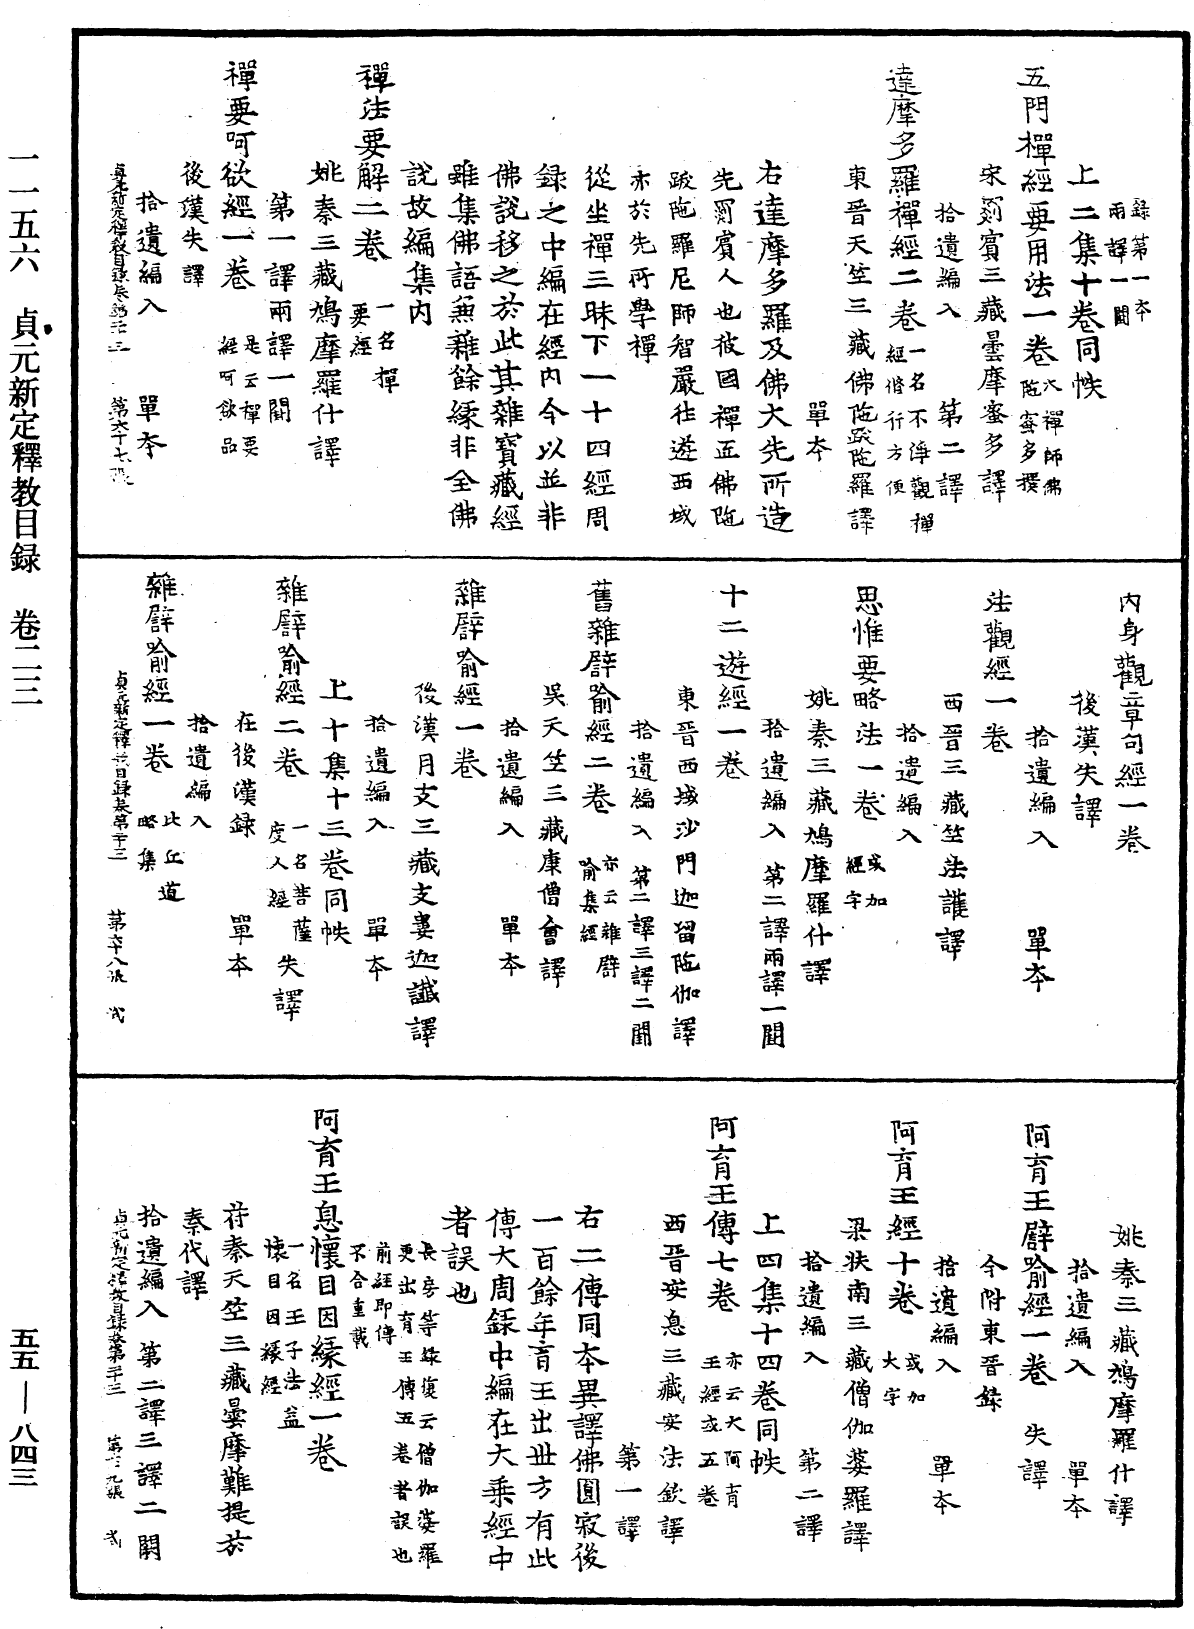 錄第一本
兩譯一闕
上二集十卷同帙
五門禪經要用法一卷 大禪師佛陁蜜多撰
宋罽賓三藏曇摩蜜多譯
拾遺編入 第二譯
達摩多羅禪經二卷 一名不淨觀禪經脩行方便
東晉天竺三藏佛陁跋陁羅譯
單本
右達摩多羅及佛大先所造
先罽賓人也彼國禪匠佛陁
跋陁羅尼師智嚴往遊西域
亦於先所學禪
從坐禪三昧下一十四經周
錄之中編在經內今以並非
佛說移之於此其雜寶藏經
雖集佛語兼雜餘緣非全佛
說故編集內
禪法要解二卷 一名禪要經
姚秦三藏鳩摩羅什譯
第一譯兩譯一闕
禪要呵欲經一卷 是云禪要經呵欲品
後漢失譯
拾遺編入 單本
貞元新定釋教目錄卷第二十三 第六十七張
內身觀章句經一卷
後漢失譯
拾遺編入 單本
法觀經一卷
西晉三藏竺法護譯
拾遺編入
思惟要略法一卷 或加經字
姚秦三藏鳩摩羅什譯
拾遺編入 第二譯兩譯一闕
十二遊經一卷
東晉西域沙門迦留陁伽譯
拾遺編入 第二譯三譯二闕
舊雜譬喻經二卷 亦云雜譬喻集經
吳天竺三藏康僧會譯
拾遺編入 單本
雜譬喻經一卷
後漢月支三藏支婁迦讖譯
拾遺編入 單本
上十集十三卷同帙
雜譬喻經二卷 一名菩薩度人經 失譯
在後漢錄 單本
拾遺編入
雜譬喻經一卷 比丘道略集
貞元新定釋教目錄卷第二十三 第六十八張 弐
姚秦三藏鳩摩羅什譯
拾遺編入 單本
阿育王譬喻經一卷 失譯
今附東晉錄
拾遺編入 單本
阿育王經十卷 或加大字
梁扶南三藏僧伽婆羅譯
拾遺編入 第二譯
上四集十四卷同帙
阿育王傳七卷 亦云大阿育王經或五卷
西晉安息三藏安法欽譯
第一譯
右二傳同本異譯佛圓寂後
一百餘年育王出世方有此
傳大周錄中編在大乘經中
者誤也
長房等錄復云僧伽婆羅
更出育王傳五卷者誤也
前經即傳
不合重載
阿育王息懷目因緣經一卷
一名王子法益
懷目因緣經
苻秦天竺三藏曇摩難提於
秦代譯
拾遺編入 第二譯三譯二闕
貞元新定釋教目錄卷第二十三 第六十九張 弐
一一五六 貞元新定釋教目録 卷二三
五五—八四三